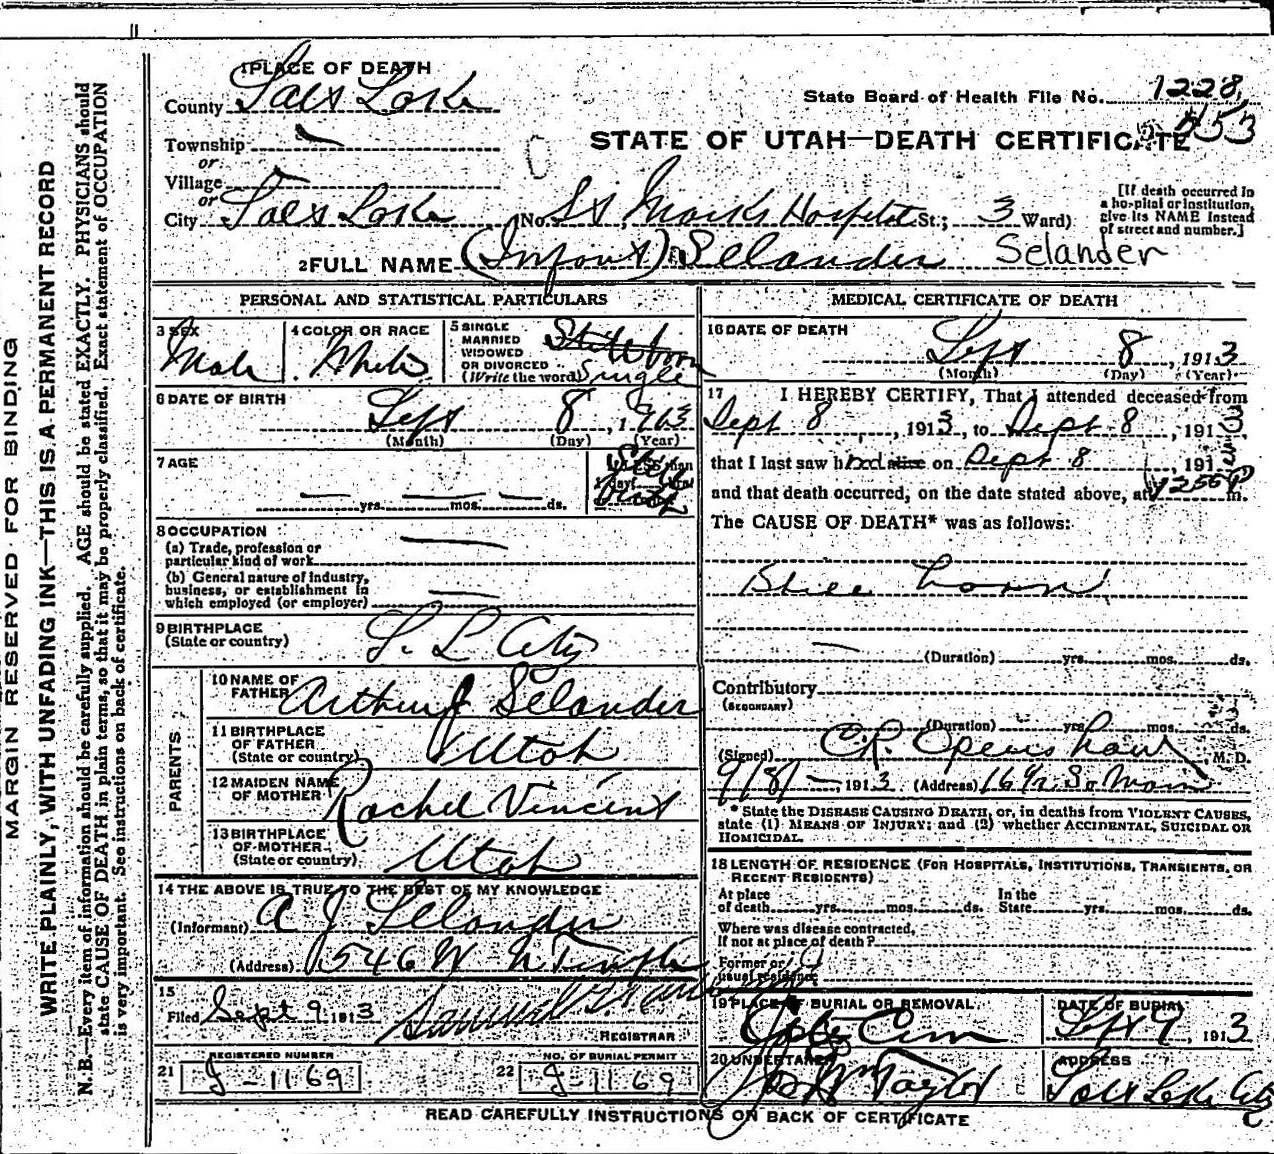 MARGIN RESERVED FOR BINDING
WRITE PLAINLY, WITH UNFADING INK—THIS IS A PERMANENT RECORD
N. B.—Every item of information should be carefully supplied. AGE should be stated EXACTLY. PHYSICIANS should
state CAUSE OF DEATH in plain terms, so that it may be properly classified. Exact statement of OCCUPATION
is very important. See instructions on back of certificate.
1 PLACE OF DEATH
County Salt Lake
State Board of Health File No. 1228
453
Township
or
Village
or
STATE OF UTAH—DEATH CERTIFICATE
City Salt Lake (No. St Marks Hospital St.; 3 Ward)
[If death occurred in
a hospital or institution,
give its NAME instead
of street and number.]
2 FULL NAME (Infant) Selander Selander
PERSONAL AND STATISTICAL PARTICULARS
3 SEX
Male
4 COLOR OR RACE
White
5 SINGLE
MARRIED
WIDOWED
OR DIVORCED
(Write the word)
Stillborn
Single
6 DATE OF BIRTH
Sept 8, 1913
(Month) (Day) (Year)
7 AGE
yrs. mos. ds.
If LESS than
1 day
Still
8 OCCUPATION
(a) Trade, profession or
particular kind of work
(b) General nature of industry,
business, or establishment in
which employed (or employer)
9 BIRTHPLACE
(State or country)
S. L City
PARENTS
10 NAME OF
FATHER
Arthur J Selander
11 BIRTHPLACE
OF FATHER
(State or country)
Utah
12 MAIDEN NAME
OF MOTHER
Rachel Vincent
13 BIRTHPLACE
OF MOTHER
(State or country)
Utah
14 THE ABOVE IS TRUE TO THE BEST OF MY KNOWLEDGE
(Informant) A J Selander
(Address) 546 W N Temple
15
Filed Sept 9 1913
REGISTRAR
21 REGISTERED NUMBER
J-1169
22 NO. OF BURIAL PERMIT
J-1169
MEDICAL CERTIFICATE OF DEATH
16 DATE OF DEATH
Sept 8, 1913
(Month) (Day) (Year)
17 I HEREBY CERTIFY, That I attended deceased from
Sept 8, 1913, to Sept 8, 1913,
that I last saw h alive on Sept 8, 191
and that death occurred, on the date stated above, at 1255 P m.
The CAUSE OF DEATH* was as follows:
Still born
(Duration) yrs. mos. ds.
Contributory
(SECONDARY)
(Duration) yrs. mos. ds.
(Signed) C. R. Openshaw, M. D.
9/8/ 1913 (Address) 16 1/2 So Main
* State the DISEASE CAUSING DEATH, or, in deaths from VIOLENT CAUSES,
state (1) MEANS OF INJURY; and (2) whether ACCIDENTAL, SUICIDAL OR
HOMICIDAL.
18 LENGTH OF RESIDENCE (FOR HOSPITALS, INSTITUTIONS, TRANSIENTS, OR
RECENT RESIDENTS)
At place
of death yrs. mos. ds.
In the
State yrs. mos. ds.
Where was disease contracted,
if not at place of death?
Former or
usual residence
19 PLACE OF BURIAL OR REMOVAL
City Cem
DATE OF BURIAL
Sept 9, 1913
20 UNDERTAKER
Jos Wm Taylor
ADDRESS
Salt Lake City
READ CAREFULLY INSTRUCTIONS ON BACK OF CERTIFICATE